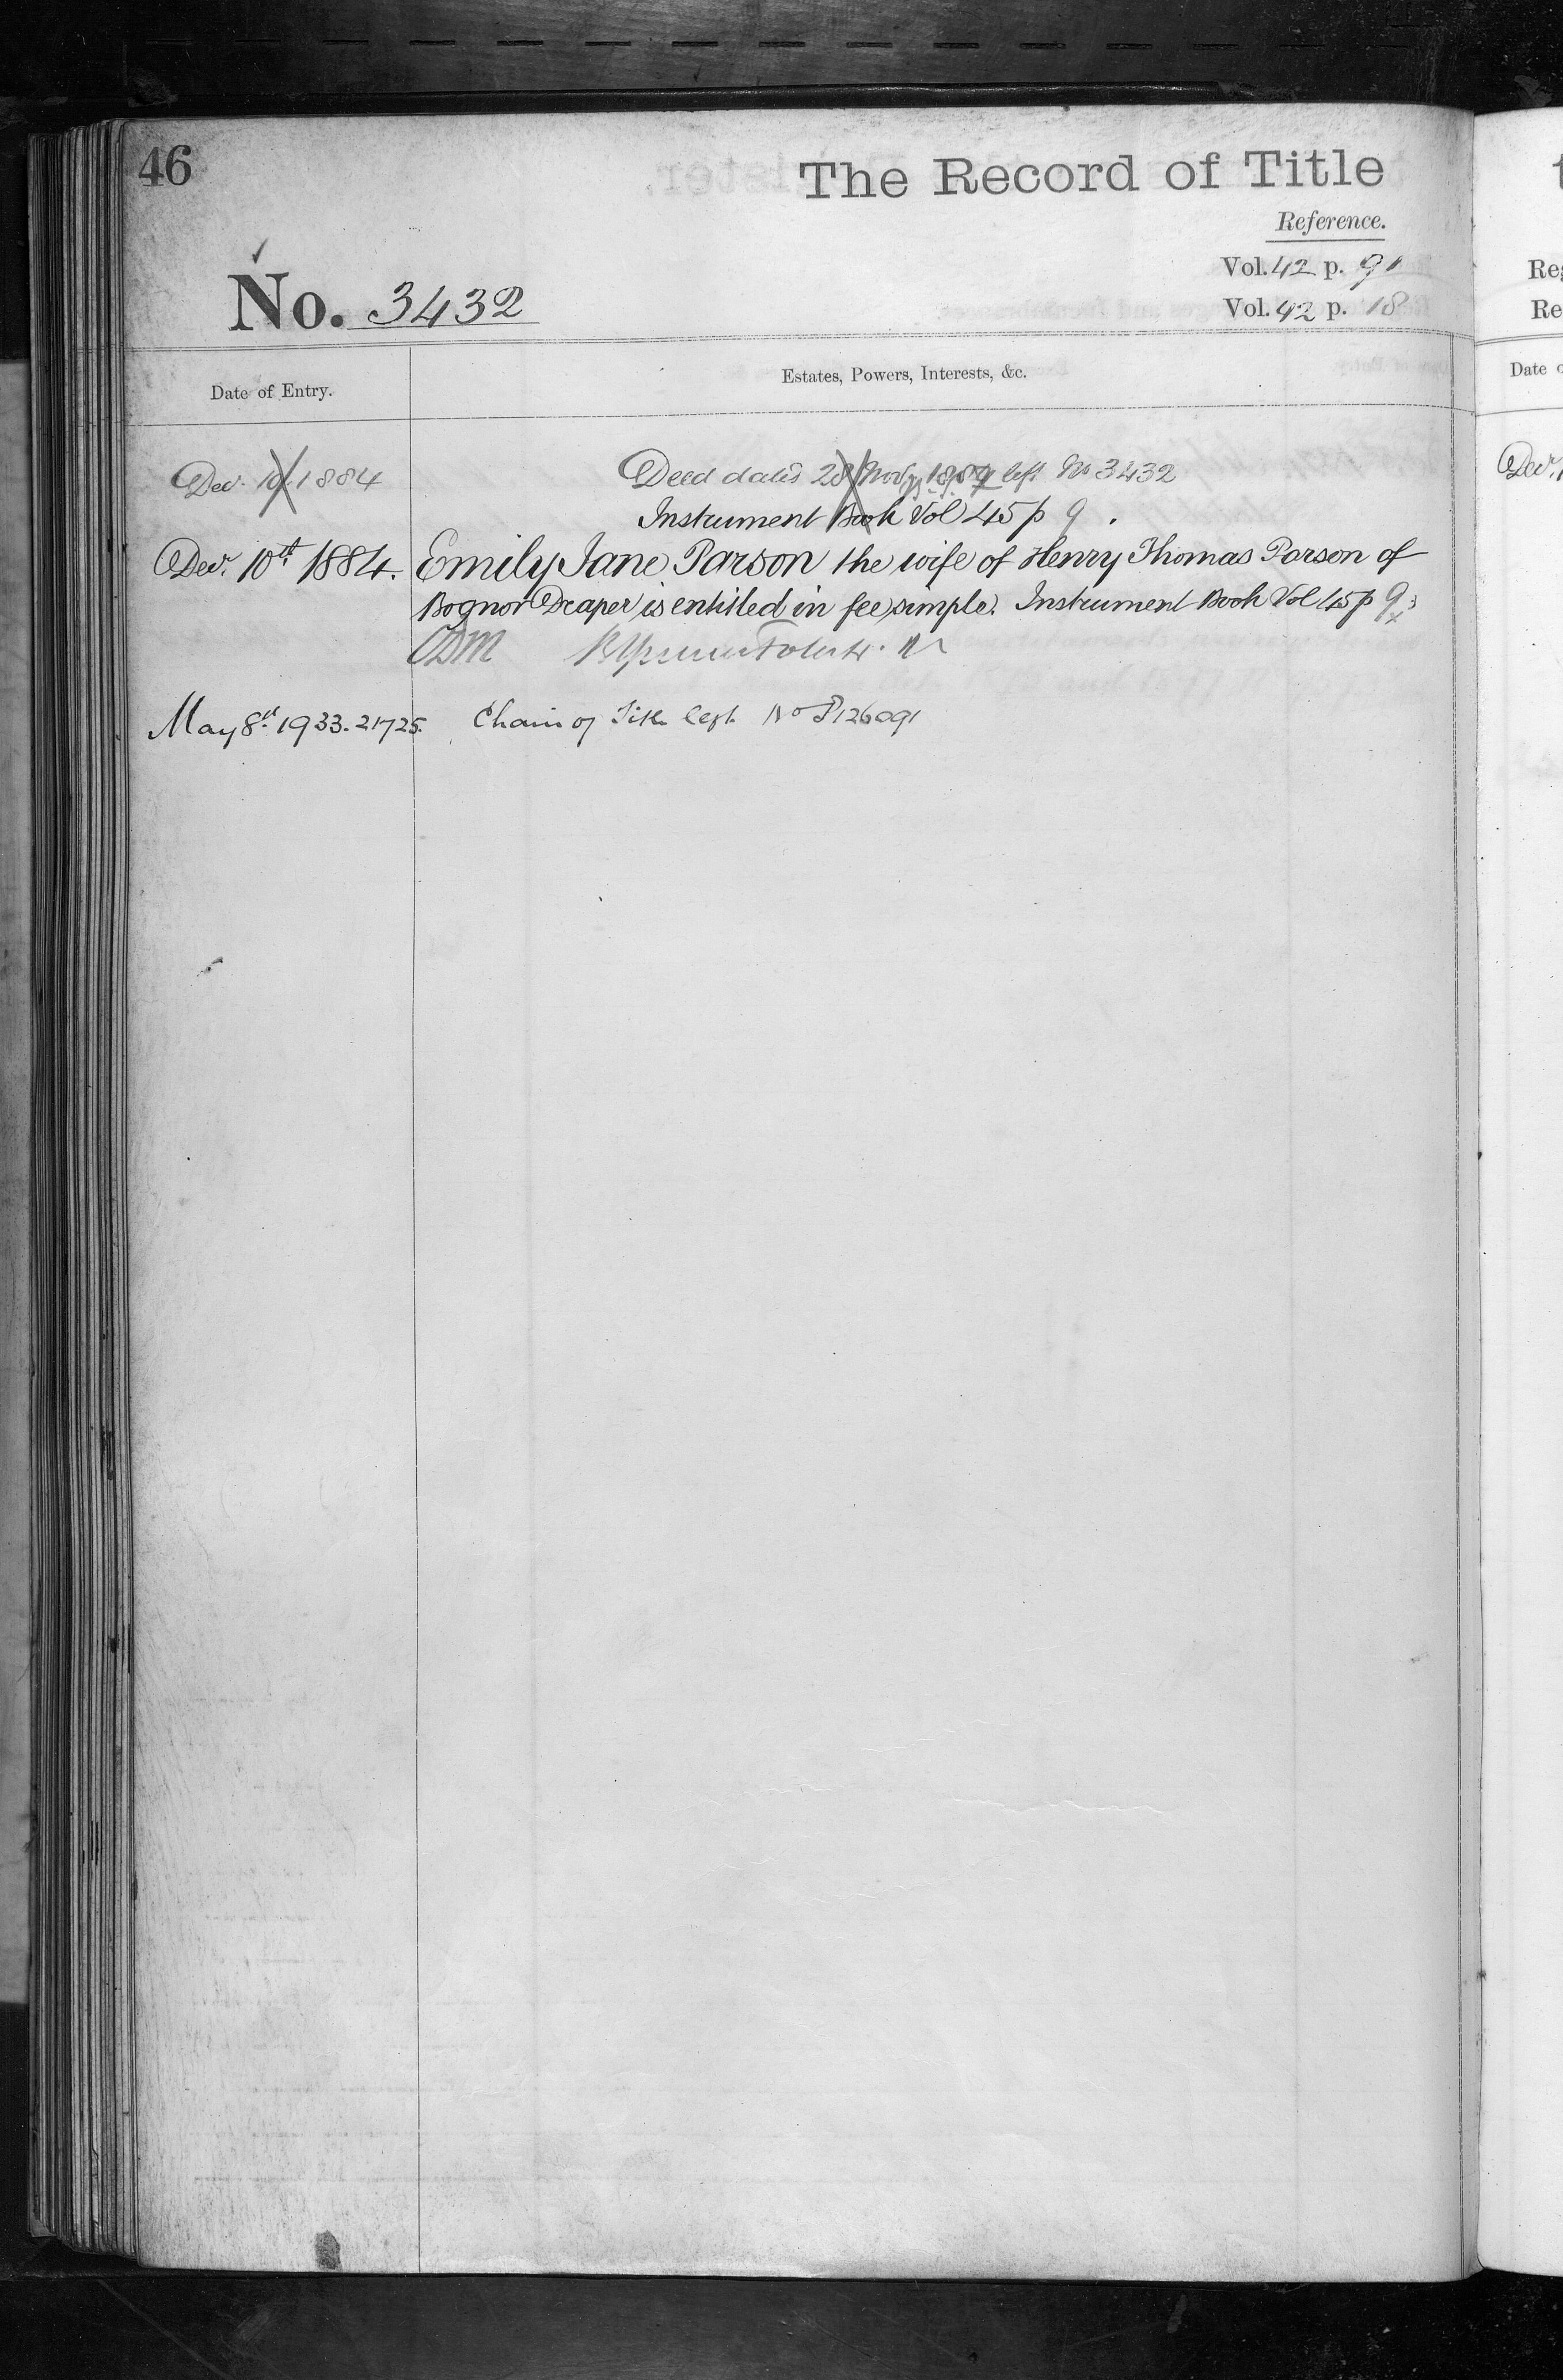 46
The Record of Title
Reference.
Vol. 42 p. 91
No. 3432
Vol. 42 p. 18
Date of Entry.
Estates, Powers, Interests, &c.
Dec. 10. 1884
Deed dated 28 Nov. 1884 left No 3432
Instrument Book Vol 45 p 9.
Dec. 10th 1884. Emily Jane Parson the wife of Henry Thomas Parson of
Bognor Draper is entitled in fee simple. Instrument Book Vol 45 p 9
May 8th 1933. 21725. Chain of Title left No P126091
Reg
Re
Date o
Dec.